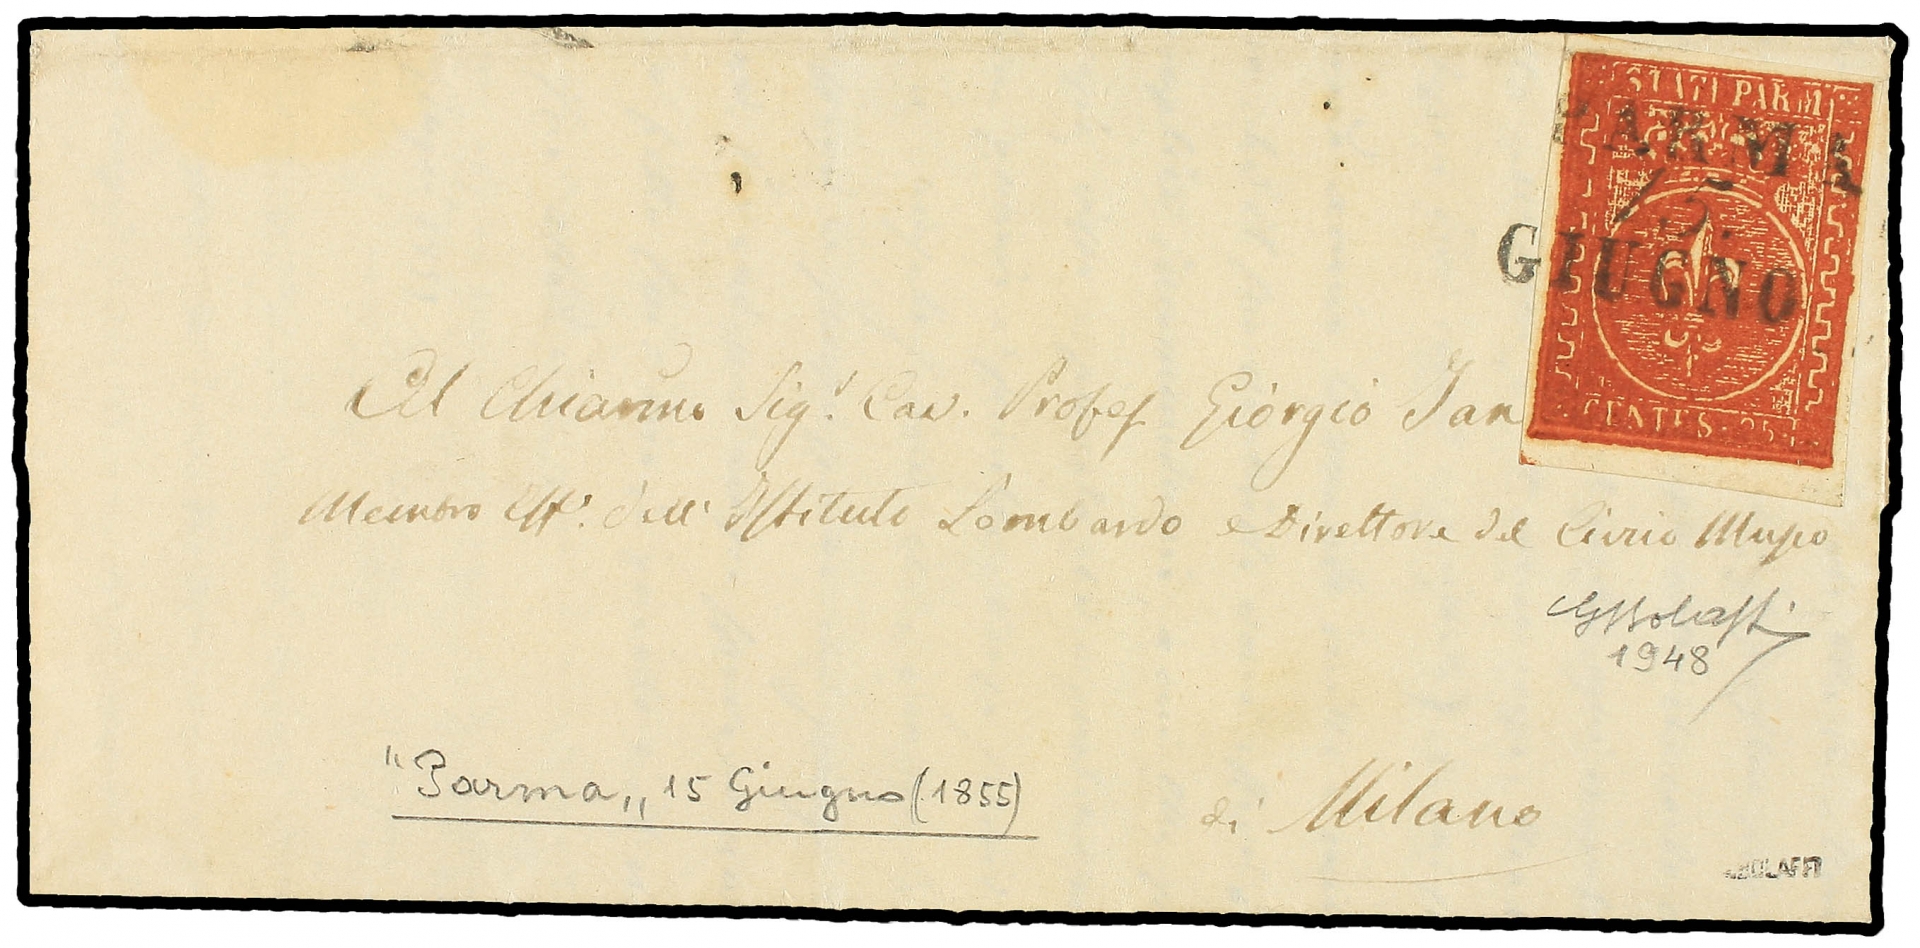 STATI PARM
PARMA
15.
GIUGNO
CENTES. 25.
Al Chiarmo Sigr. Cav. Profess Giorgio Jan
Membro Eff. dell' Istituto Lombardo e Direttore del Civico Museo
GBolaffi
1948
"Parma„ 15 Giugno (1855)
di Milano
A.BOLAFFI